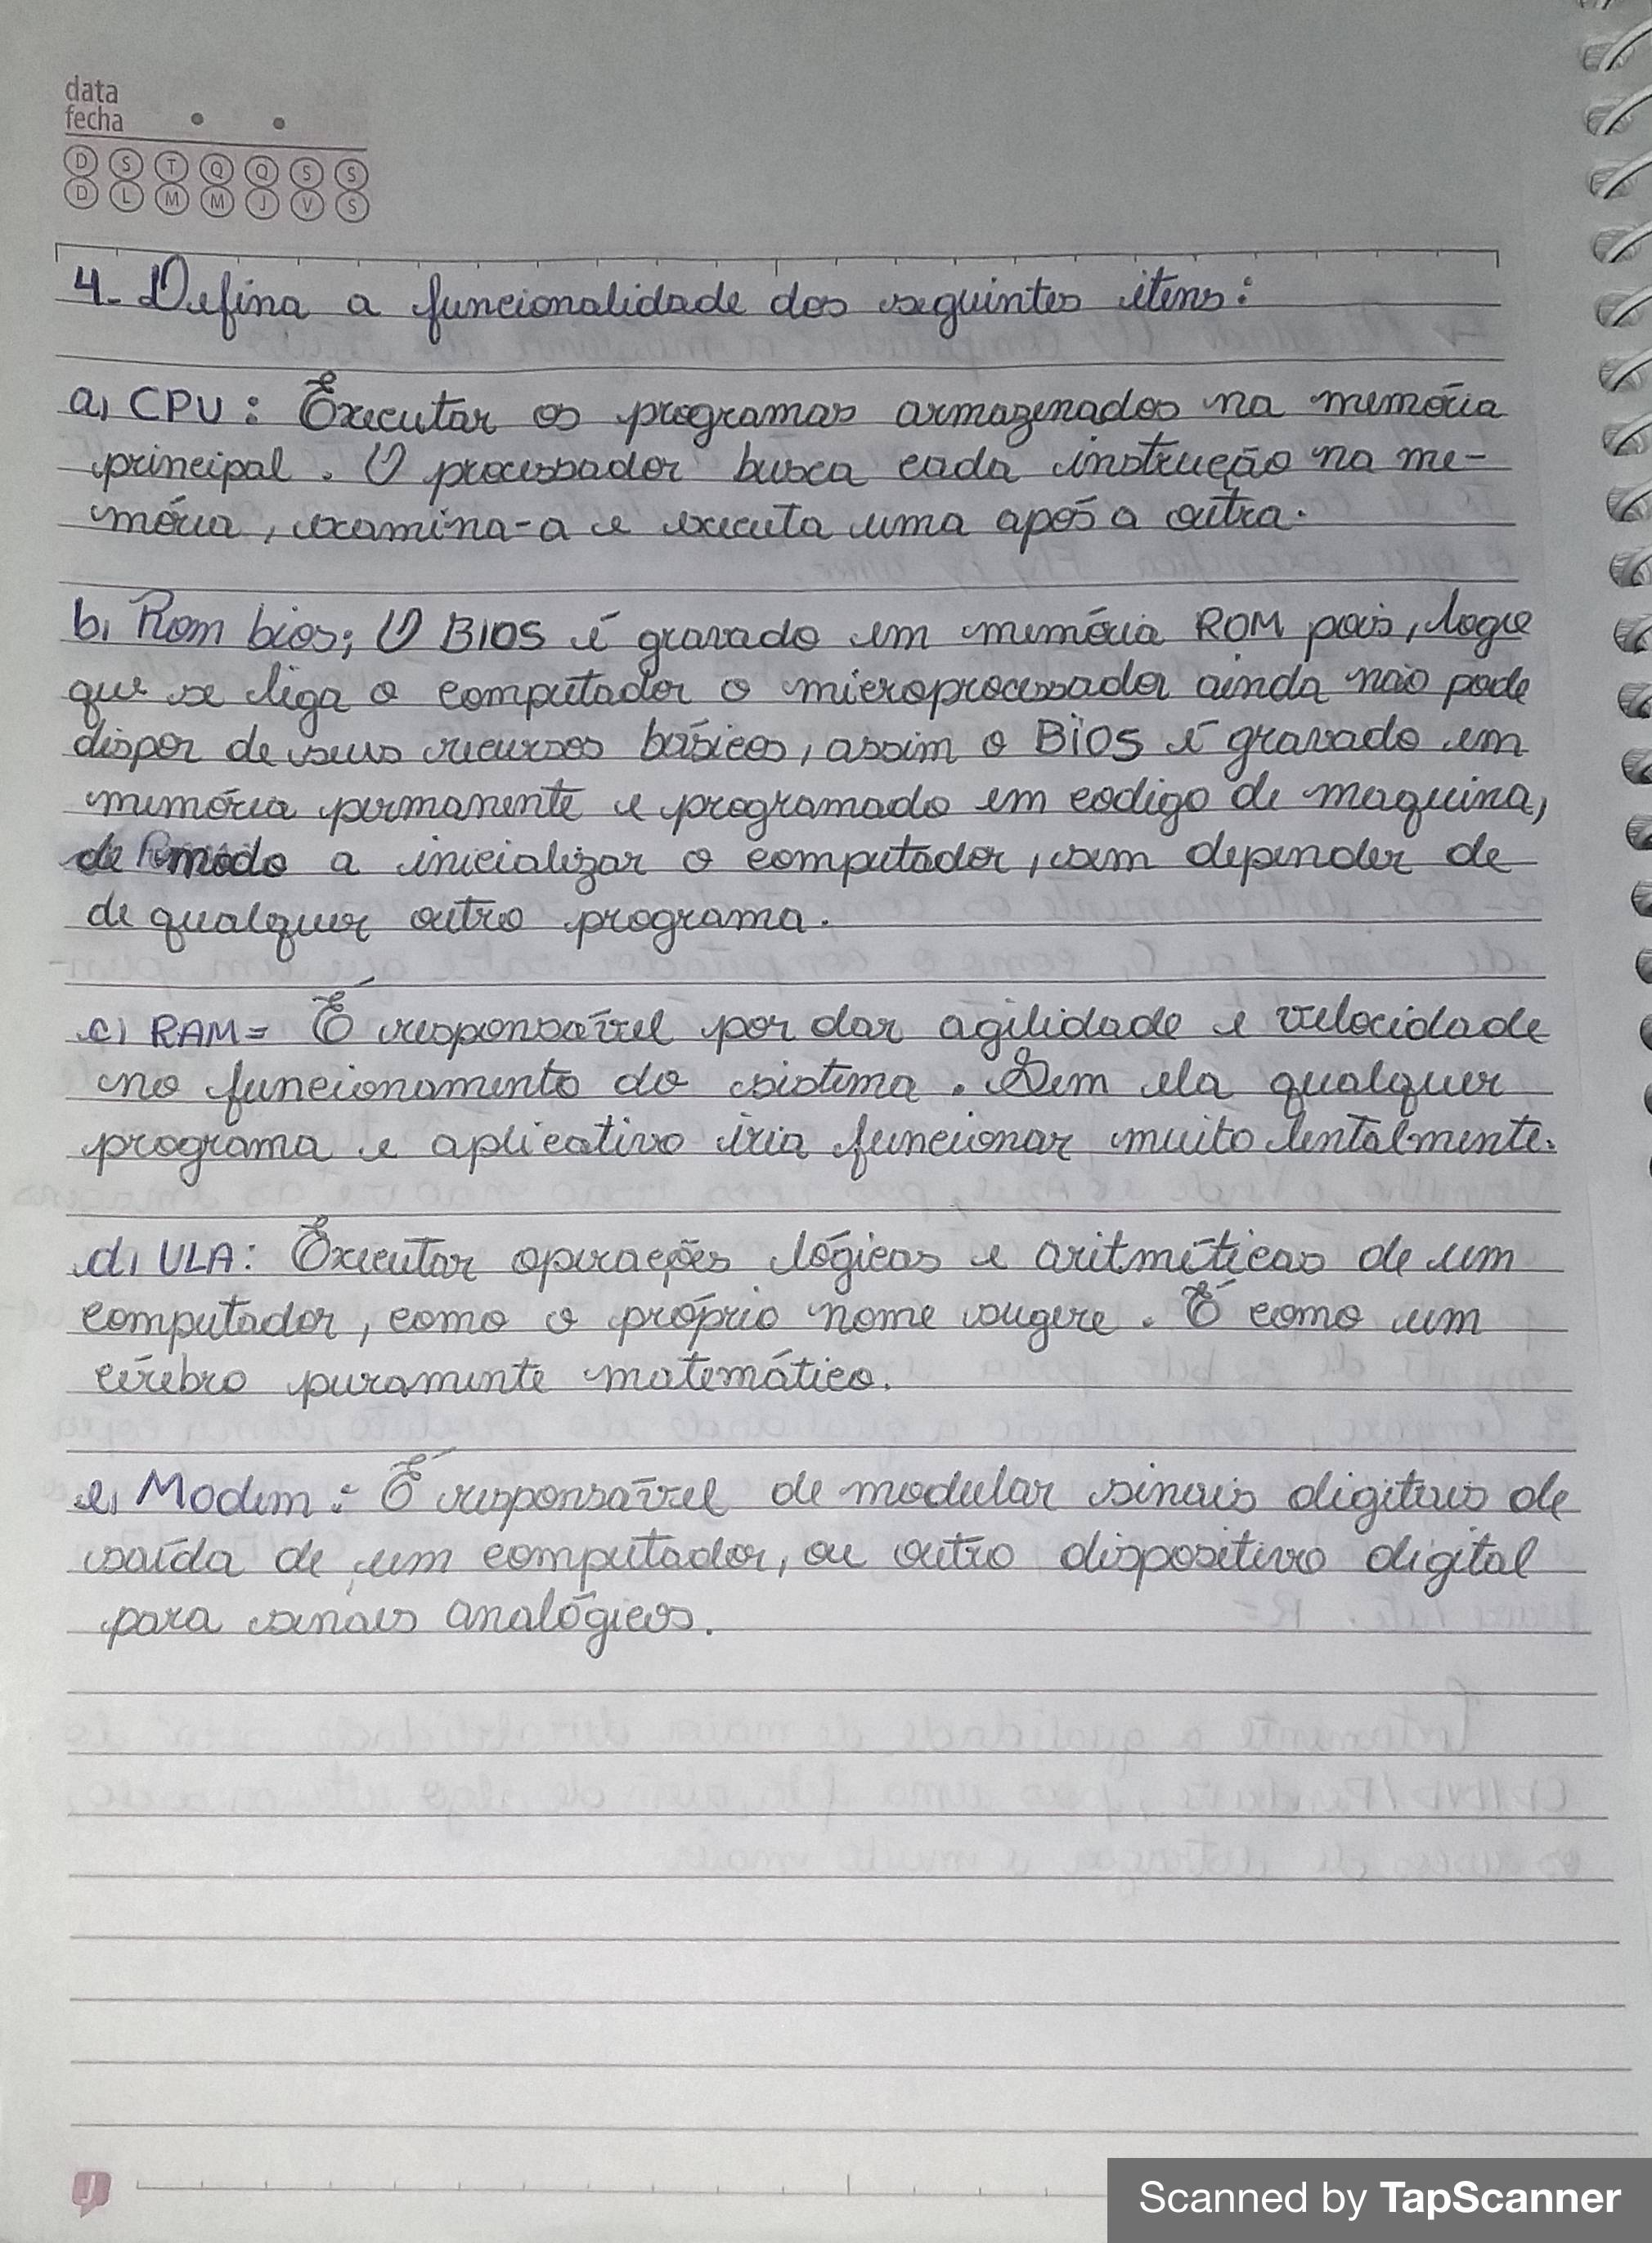 data
fecha
D S T Q Q S S
D L M M J V S
4- Defina a funcionalidade dos seguintes itens:
a) CPU: Executar os programas armazenados na memória
principal. O processador busca cada instrução na me-
mória, examina-a e executa uma após a outra.
b) Rom bios; O BIOS é gravado em memória ROM pois, logo
que se liga o computador o microprocessador ainda não pode
dispor de seus recursos básicos, assim o BIOS é gravado em
memória permanente e programado em codigo de maquina,
de modo a inicializar o computador, sem depender de
de qualquer outro programa.
c) RAM= É responsável por dar agilidade e velocidade
no funcionamento do sistema. Sem ela qualquer
programa e aplicativo iria funcionar muito lentalmente.
d) ULA: Executar operações lógicas e aritméticas de um
computador, como o próprio nome sugere. É como um
cérebro puramente matemático.
e) Modem: É responsável de modular sinais digitais de
saída de um computador, ou outro dispositivo digital
para sinais analógicos.
Scanned by TapScanner